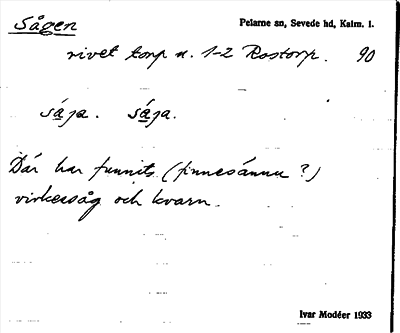 Sågen
Pelarne sn, Sevede hd, Kalm. l.
rivet torp u. 1-2 Rostorp. 90
sá̱ja. sá̱ja.
Där har funnits (finnes ännu ?)
virkessåg och kvarn.
Ivar Modéer 1933